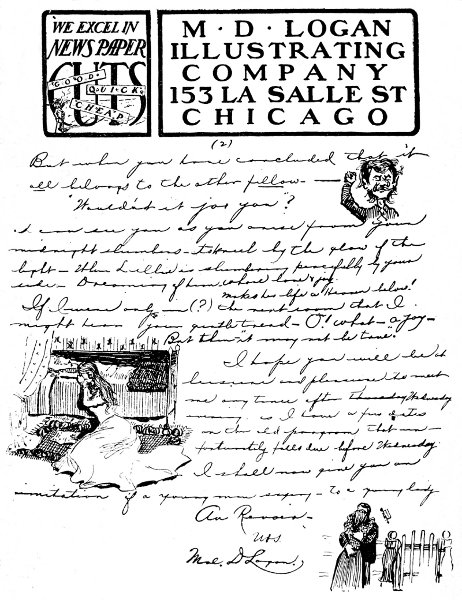 WE EXCEL IN
NEWS PAPER
CUTS
GOOD
QUICK
CHEAP
M · D · LOGAN
ILLUSTRATING
COMPANY
153 LA SALLE ST
CHICAGO
(2)
But when you have concluded that it
all belongs to the other fellow —
"Wouldn't it jos you"?
I can see you as you arise from your
midnight slumbers — by the glow of the
light — When is slumbering peacefully by your
side — Dreaming of him, whose love & joy
makes his life a Heaven below!
If I were only — (?) the next room that I
might hear your gentle tread — O! what a joy —
But then "it may not be time"
I hope you will be at
leisure and pleasure to meet
me any time after Wednesday
as I have a few dates
on the old program that un-
fortunately falls due before Wednesday
I shall now give you an
imitation of a young man saying — to a young lady
Au Revoir —
Mal. D Logan.